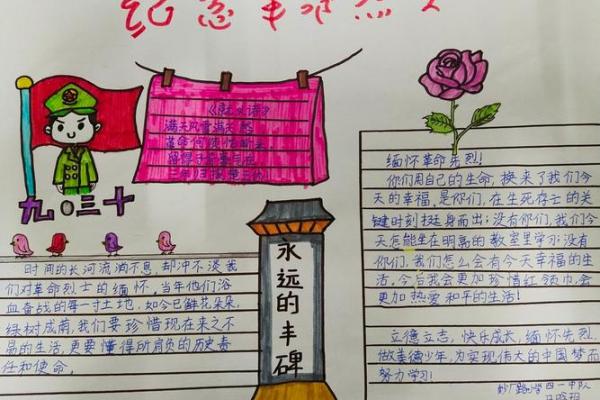 《就义诗》
满天风雪满天愁
革命何须怕断头
留得子胥豪气在
三年归报楚王仇
九〇三十
永远的丰碑
时间的长河流淌不息,却冲不淡我
们对革命烈士的缅怀,当年他们浴
血奋战的每一寸土地,如今已鲜花朵朵,
绿树成南,我们要珍惜现在来之不
易的生活,更要懂得所肩负的历史责
任和使命。
缅怀革命先烈!
你们用自己的生命,换来了我们今
天的幸福,是你们,在生死存亡的关
键时刻挺身而出;没有你们,我们今
天怎能坐在明亮的教室里学习;没有
你们,我们怎么会有今天幸福的生
活,今后我会更加珍惜红领巾,会
更加热爱和平的生活!
立德立志,快乐成长,缅怀先烈,
做美德少年,为实现伟大的中国梦而
努力学习!
四一中队